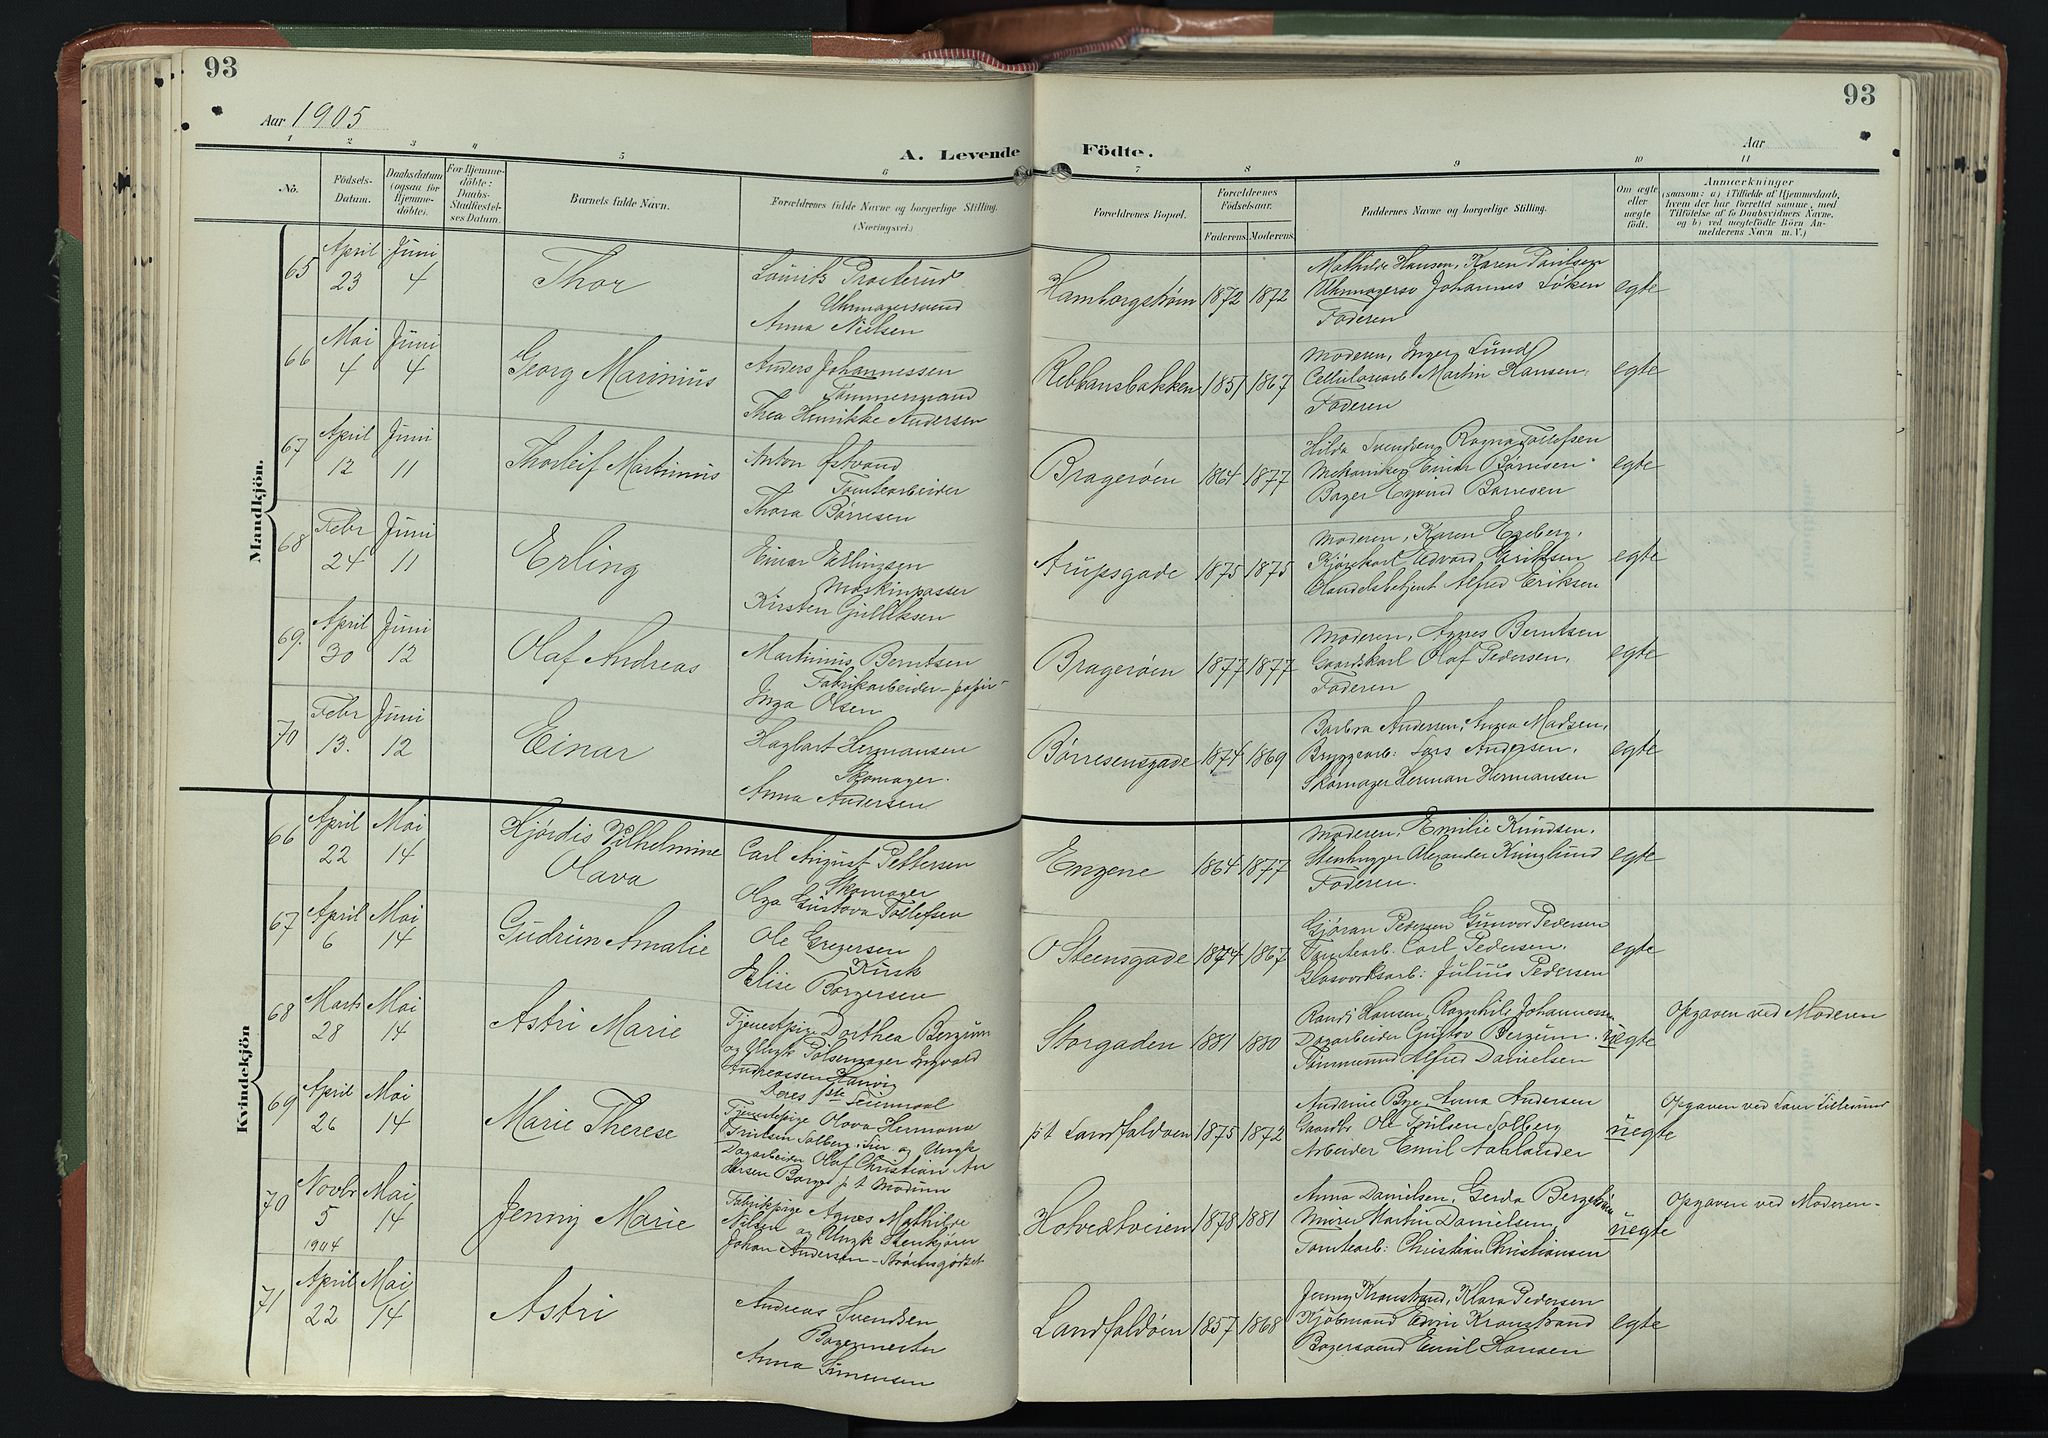 93
93
Aar 1905
Aar
A. Levende Födte.
1 2 3 4 5 6 7 8 9 10 11
No.
Födsels-Datum.
Daabsdatum (ogsaa for Hjemme-döbte).
For Hjemme-döbte: Daabs-Stadfæstel-ses Datum.
Barnets fulde Navn.
Forældrenes fulde Navne og borgerlige Stilling.
(Næringsvei.)
Forældrenes Bopæl.
Forældrenes Födselsaar.
Faderens. Moderens.
Faddernes Navne og borgerlige Stilling.
Om ægte eller uægte födt.
Anmærkninger
(saasom: a) i Tilfælde af Hjemmedaab, hvem der har forrettet samme, med Tilföielse af to Daabsvidners Navne, og b) ved uægtefödte Börn An-melderens Navn m. V.)
Mandkjön.
65 April 23 Juni 4 Thor
Laurits Prosterud
Uhrmagersvend
Anna Nielsen
Hamborgstrøm 1872 1872
Mathilde Hansen, Karen Paulsen
Uhrmagersv Johannes Løken
Faderen
egte
66 Mai 4 Juni 4 Georg Marinius
Anders Johannessen
Tømmermand
Thea Henrikke Andersen
Rebbansbakken 1851 1867
Moderen, Inger Lund
Cellulosearb. Martin Hansen.
Faderen
egte
67 April 12 Juni 11 Thorleif Martinius
Anton Østvand
Tomtearbeider
Thora Børresen
Bragerøen 1864 1877
Hilda Svendsen, Ragna Tollefsen
Mekaniker Einar Børresen
Bager Eyvind Børresen
egte
68 Febr 24 Juni 11 Erling
Einar Erlingsen
Maskinpasser
Kirsten Gulliksen
Arupsgade 1875 1875
Moderen, Karen Egeberg,
Kjørekarl Edvard Eriksen
Handelsbetjent Alfred Eriksen
egte
69. April 30 Juni 12 Olaf Andreas
Martinius Berntsen
Fabrikarbeider - papir -
Inga Olsen
Bragerøen 1877 1877
Moderen, Agnes Berntsen
Gaardskarl Olaf Pedersen,
Faderen
egte
70 Febr 13. Juni 12 Einar
Hagbart Hermansen
Skomager.
Anna Andersen
Børresensgade 1874 1869
Barbra Andersen, Anna Madsen,
Bryggearb: Lars Andersen,
Skomager Herman Hermansen
egte
Kvindekjön
66 April 22 Mai 14 Hjørdis Vilhelmine
Olava
Carl August Pettersen
Skomager
Olga Gustava Tollefsen
Engene 1864 1877
Moderen, Emilie Knudsen,
Stenhugger Alexander Kunglund
Faderen.
egte
67 April 6 Mai 14 Gudrun Amalie
Ole Gregersen
Kusk
Elise Borgersen
O Steensgade 1874 1867
Gjøran Pedersen Gunvor Pedersen
Tomtearb. Carl Pedersen.
Glasværksarb: Julius Pedersen
egte
68 Marts 28 Mai 14 Astri Marie
Tjenestepige Dorthea Bergum
og Ungk Pølsemager Ingvald
Andreassen Hamvig
Deres 1ste Leiermaal
Storgaden 1881 1880
Randi Hansen, Ragnhild Johannessen
Dagarbeider Gustav Bergum.
Tømmermand Alfred Danielsen
uegte
Opgaven ved Moderen
69 April 26 Mai 14 Marie Therese
Tjenestepige Olava Hermana
Truelsen Solberg, Lier og Ungk
Dagarbeider Olaf Christian An
dersen Borge p t Modum
pt Landfaldøen 1875 1872
Andrine Bye, Anna Andersen
Gaardbr Ole Truelsen Solberg
Arbeider Emil Aahlander
uegte
Opgaven ved
70 Novbr 5 1904 Mai 14 Jenny Marie
Fabrikpige Agnes Mathilde
Nilsen og Ungk Stenkjører
Johan Andersen - Strømsgodset
Hotvedtveien 1878 1881
Anna Danielsen, Gerda
Murer Martin Danielsen,
Tomtearb: Christian Christiansen
uegte
Opgaven ved Moderen-
71 April 22 Mai 14 Astri
Andreas Svendsen
Bagermester
Anna Simensen
Landfaldøen 1857 1868
Jenny Kronstrand, Klara Pedersen
Kjøbmand Edvin Kronstrand
Bagersvend Emil Hansen
egte